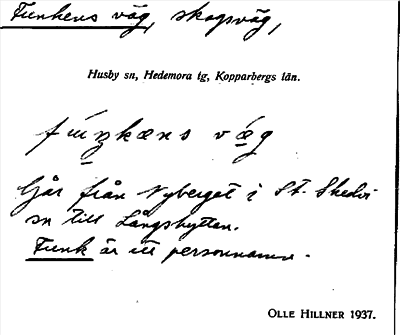 Funkens väg, skogsväg,
Husby sn, Hedemora tg, Kopparbergs län.
Går från Nyberget i St. Skedvi
sn till Långshyttan.
Funk är ett personnamn.
OLLE HILLNER 1937.